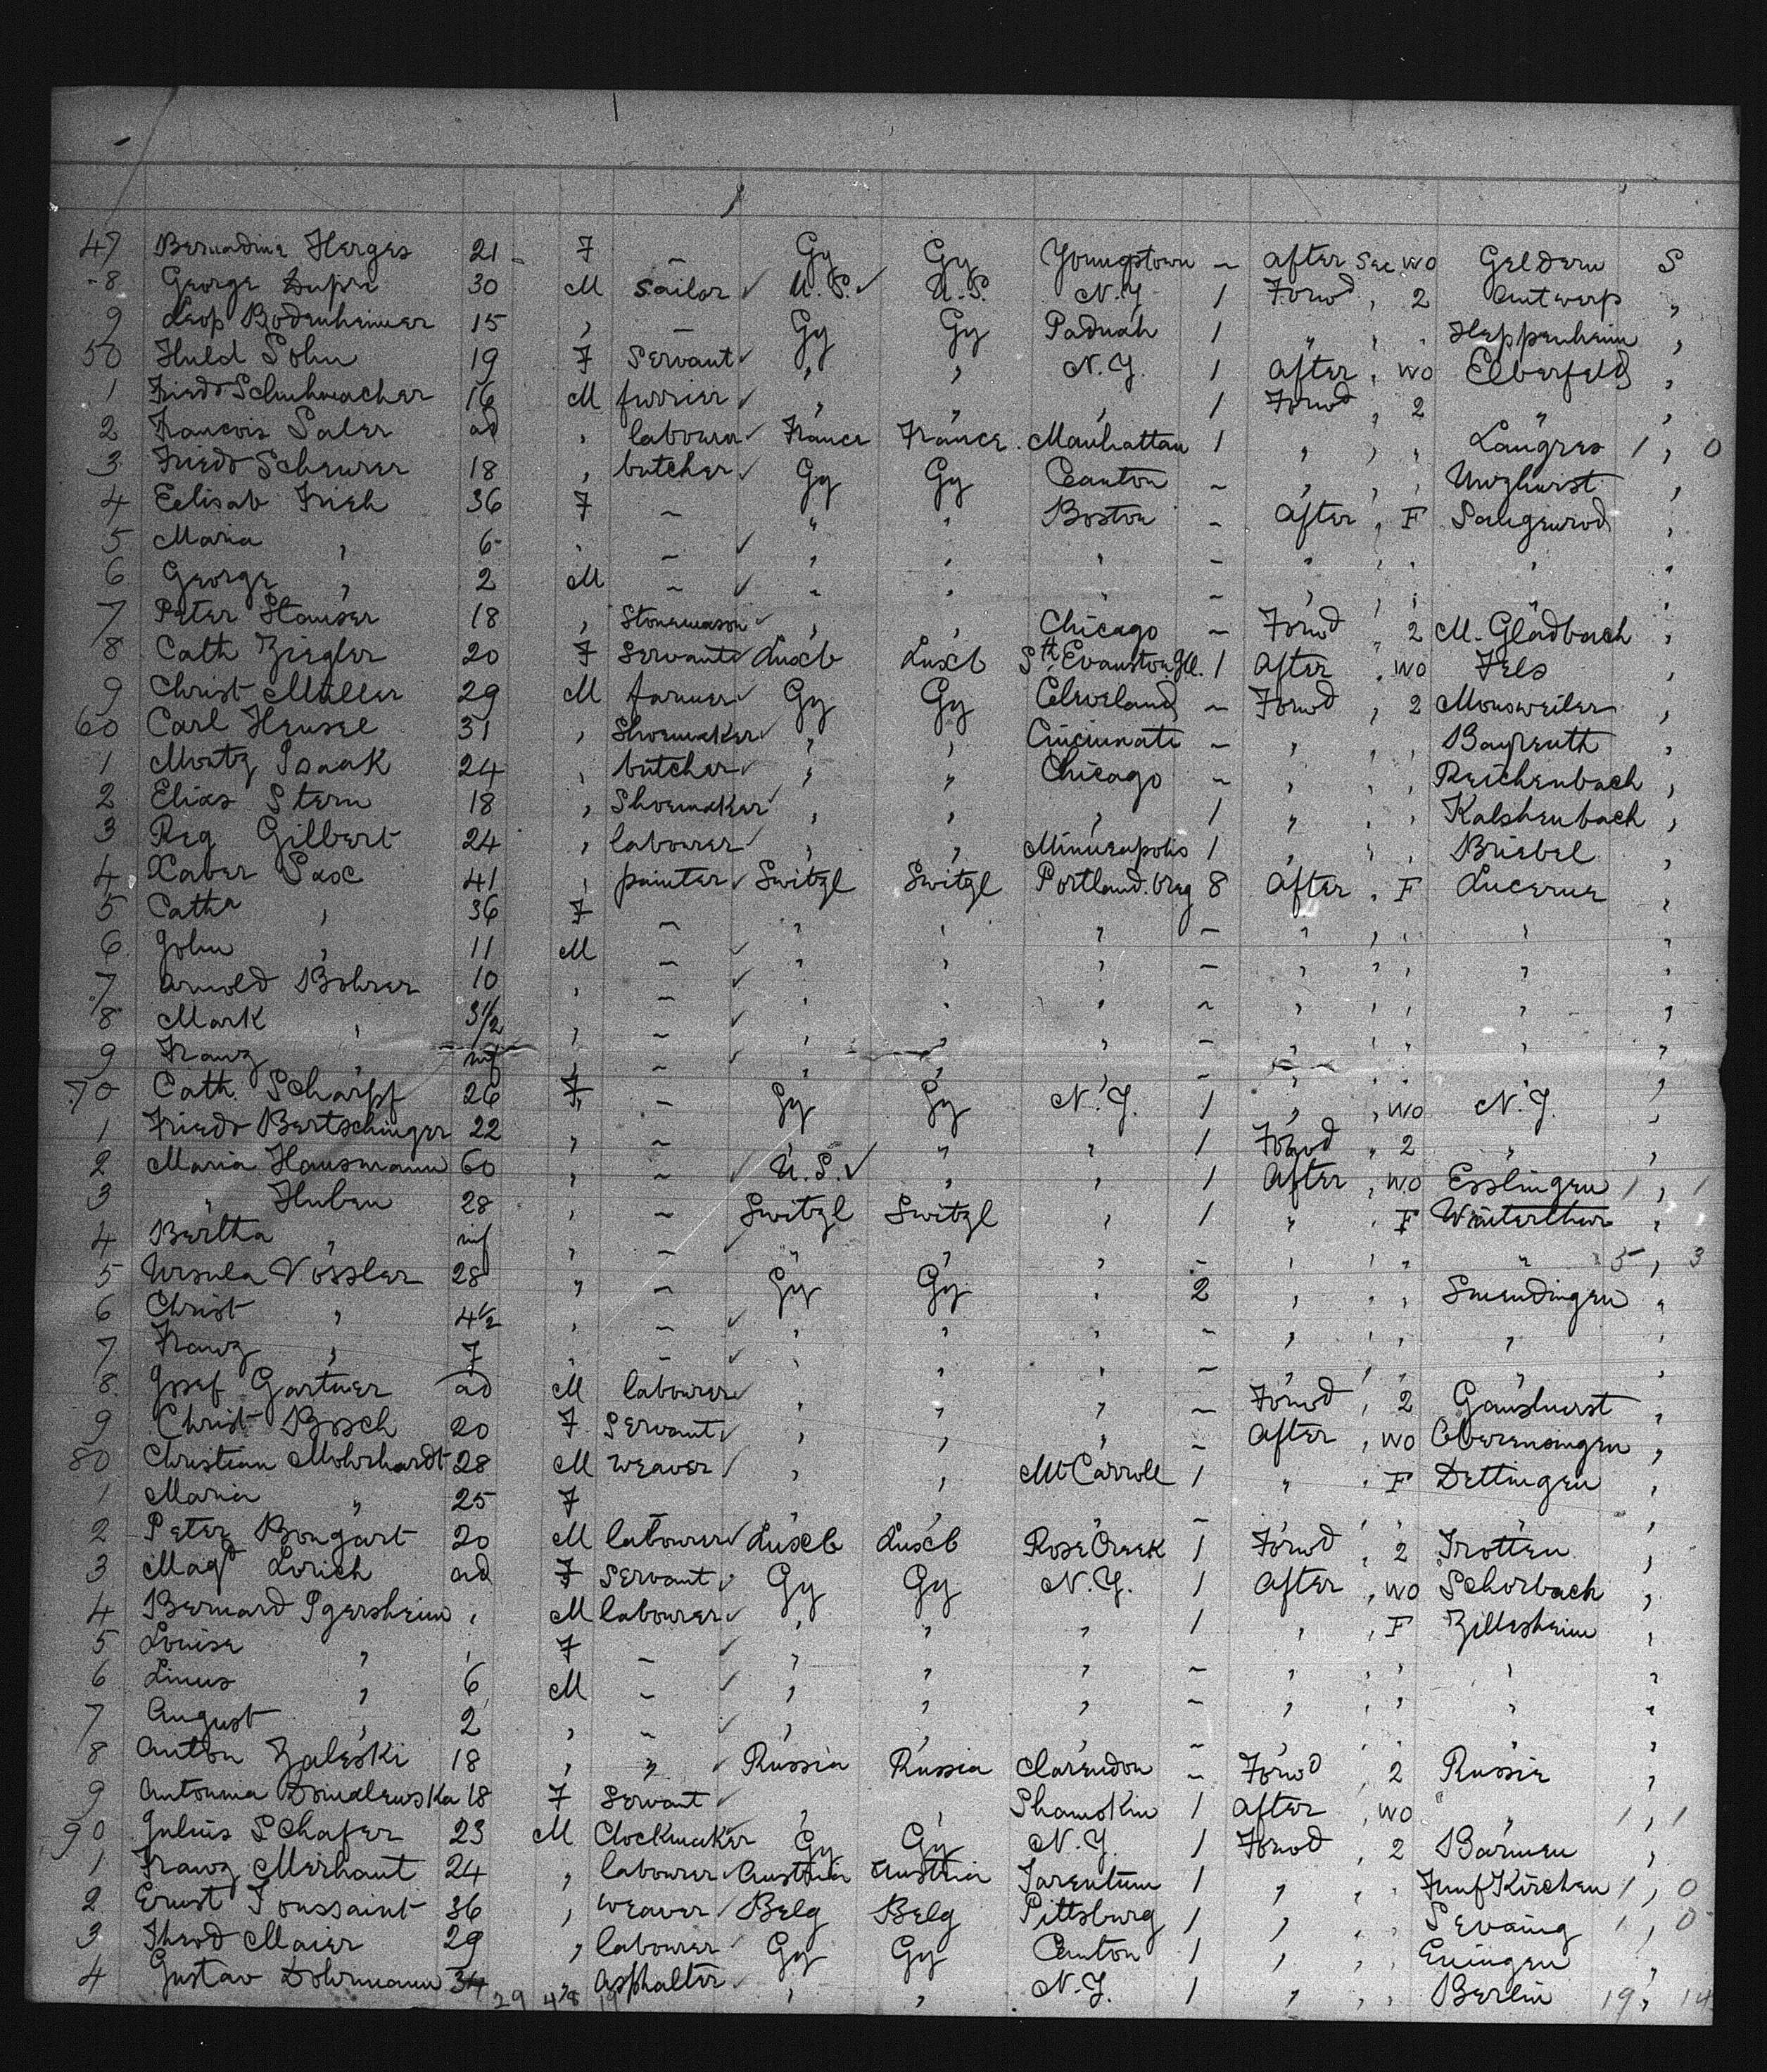 47 Bernadine Herges 21 F – Gy Gy Youngstown – After Sec WO Geldern S
-8 George Dupre 30 M Sailor U.S. U.S. N.Y 1 Forwd , 2 Antwerp ,
9 Leop Bodenheimer 15 , – Gy Gy Paducah 1 , , , Heppenheim ,
50 Huld Sohn 19 F Servant , , N.Y. 1 After , WO Elberfeld ,
1 Friedr Schuhmacher 16 M furrier , , , 1 Forwd , 2 , ,
2 Francois Saler ad , labourer France France Manhattan 1 , , , Langres 1 , 0
3 Friedr Scheurer 18 , butcher Gy Gy Canton – , , , Unzhurst ,
4 Eelisab Frieh 36 F – , , Boston – After , F ,
5 Maria , 6 , – , , , – , , , , ,
6 George , 2 M – , , , – , , , , ,
7 Peter Stauser 18 , Stonemason , , Chicago – Forwd , 2 M. Gladbach ,
8 Cath Ziegler 20 F Servant Luxb Luxb Sth Evanston Ill. 1 After , WO Fels ,
9 Christ Müller 29 M farmer Gy Gy Cleveland – Forwd , 2 Monsweiler ,
60 Carl Hensel 31 , Shoemaker , , Cincinnati – , , , Bayreuth ,
1 Moritz Isaak 24 , butcher , , Chicago – , , , Reichenbach ,
2 Elias Stern 18 , Shoemaker , , , 1 , , , Kalshenbach ,
3 Reg Gilbert 24 , labourer , , Minneapolis 1 , , , Briebel ,
4 Xaver Sax 41 , painter Switzl Switzl Portland. Oreg 8 After , F Lucerne ,
5 Catha , 36 F – , , , – , , , , ,
6 John , 11 M – , , , – , , , , ,
7 Arnold Bohrer 10 , – , , , – , , , , ,
8 Mark , 3 1/2 , – , , , – , , , , ,
9 Franz , inf , – , , , – , , , , ,
70 Cath. Scharpf 26 F – Gy Gy N.Y. 1 , , WO N.Y. ,
1 Friedr Bertschinger 22 , – , , 1 Forwd , 2 , ,
2 Maria Hausmann 60 , – U.S. , , 1 After , WO Esslingen 1 , 1
3 , Huben 28 , – Switzl Switzl , 1 , , F Winterthur ,
4 Bertha , inf , – , , , – , , , , 5 , 3
5 Ursula Vossler 28 , – Gy Gy , 2 , , , Smendingen ,
6 Christ , 4 1/2 , – , , , – , , , , ,
7 Franz , 7 , – , , , – , , , , ,
8 Josef Gartner ad M labourer , , , – Forwd , 2 Gamshurst ,
9 Christ Bosch 20 F Servant , , , – After , WO Oberensingen ,
80 Christian Mohrhardt 28 M weaver , , Mt Carroll 1 , , F Dettingen ,
1 Maria , 25 F – , , , – , , , , ,
2 Peter Bongart 20 M labourer Luxb Luxb Rose Creek 1 Forwd , 2 Trotten ,
3 Magd Lorich ad F Servant Gy Gy N.Y. 1 After , WO Schorbach ,
4 Bernard Igersheim , M labourer , , , 1 , , F Zillisheim ,
5 Louise , , F – , , , – , , , , ,
6 Linus , 6 M – , , , – , , , , ,
7 August , 2 , – , , , – , , , , ,
8 Anton Zaleski 18 , , Russia Russia Clarendon – Forwd , 2 Russie ,
9 Antonina 18 F Servant , , Shamokin 1 After , WO , 1 , 1
90 Julius Schafer 23 M Clockmaker Gy Gy N.Y. 1 Forwd , 2 Barmen ,
1 Franz Merhaut 24 , labourer Austria Austria Tarentum 1 , , , Funfkirchen 1 , 0
2 Ernst Toussaint 36 , weaver Belg Belg Pittsburg 1 , , , Sevaing 1 , 0
3 Theod Maier 29 , labourer Gy Gy Canton 1 , , , Eningen ,
4 Gustav Dohrmann 34 , Asphalter , , N.Y. 1 , , , Berlin 19 , 14
29 48 19